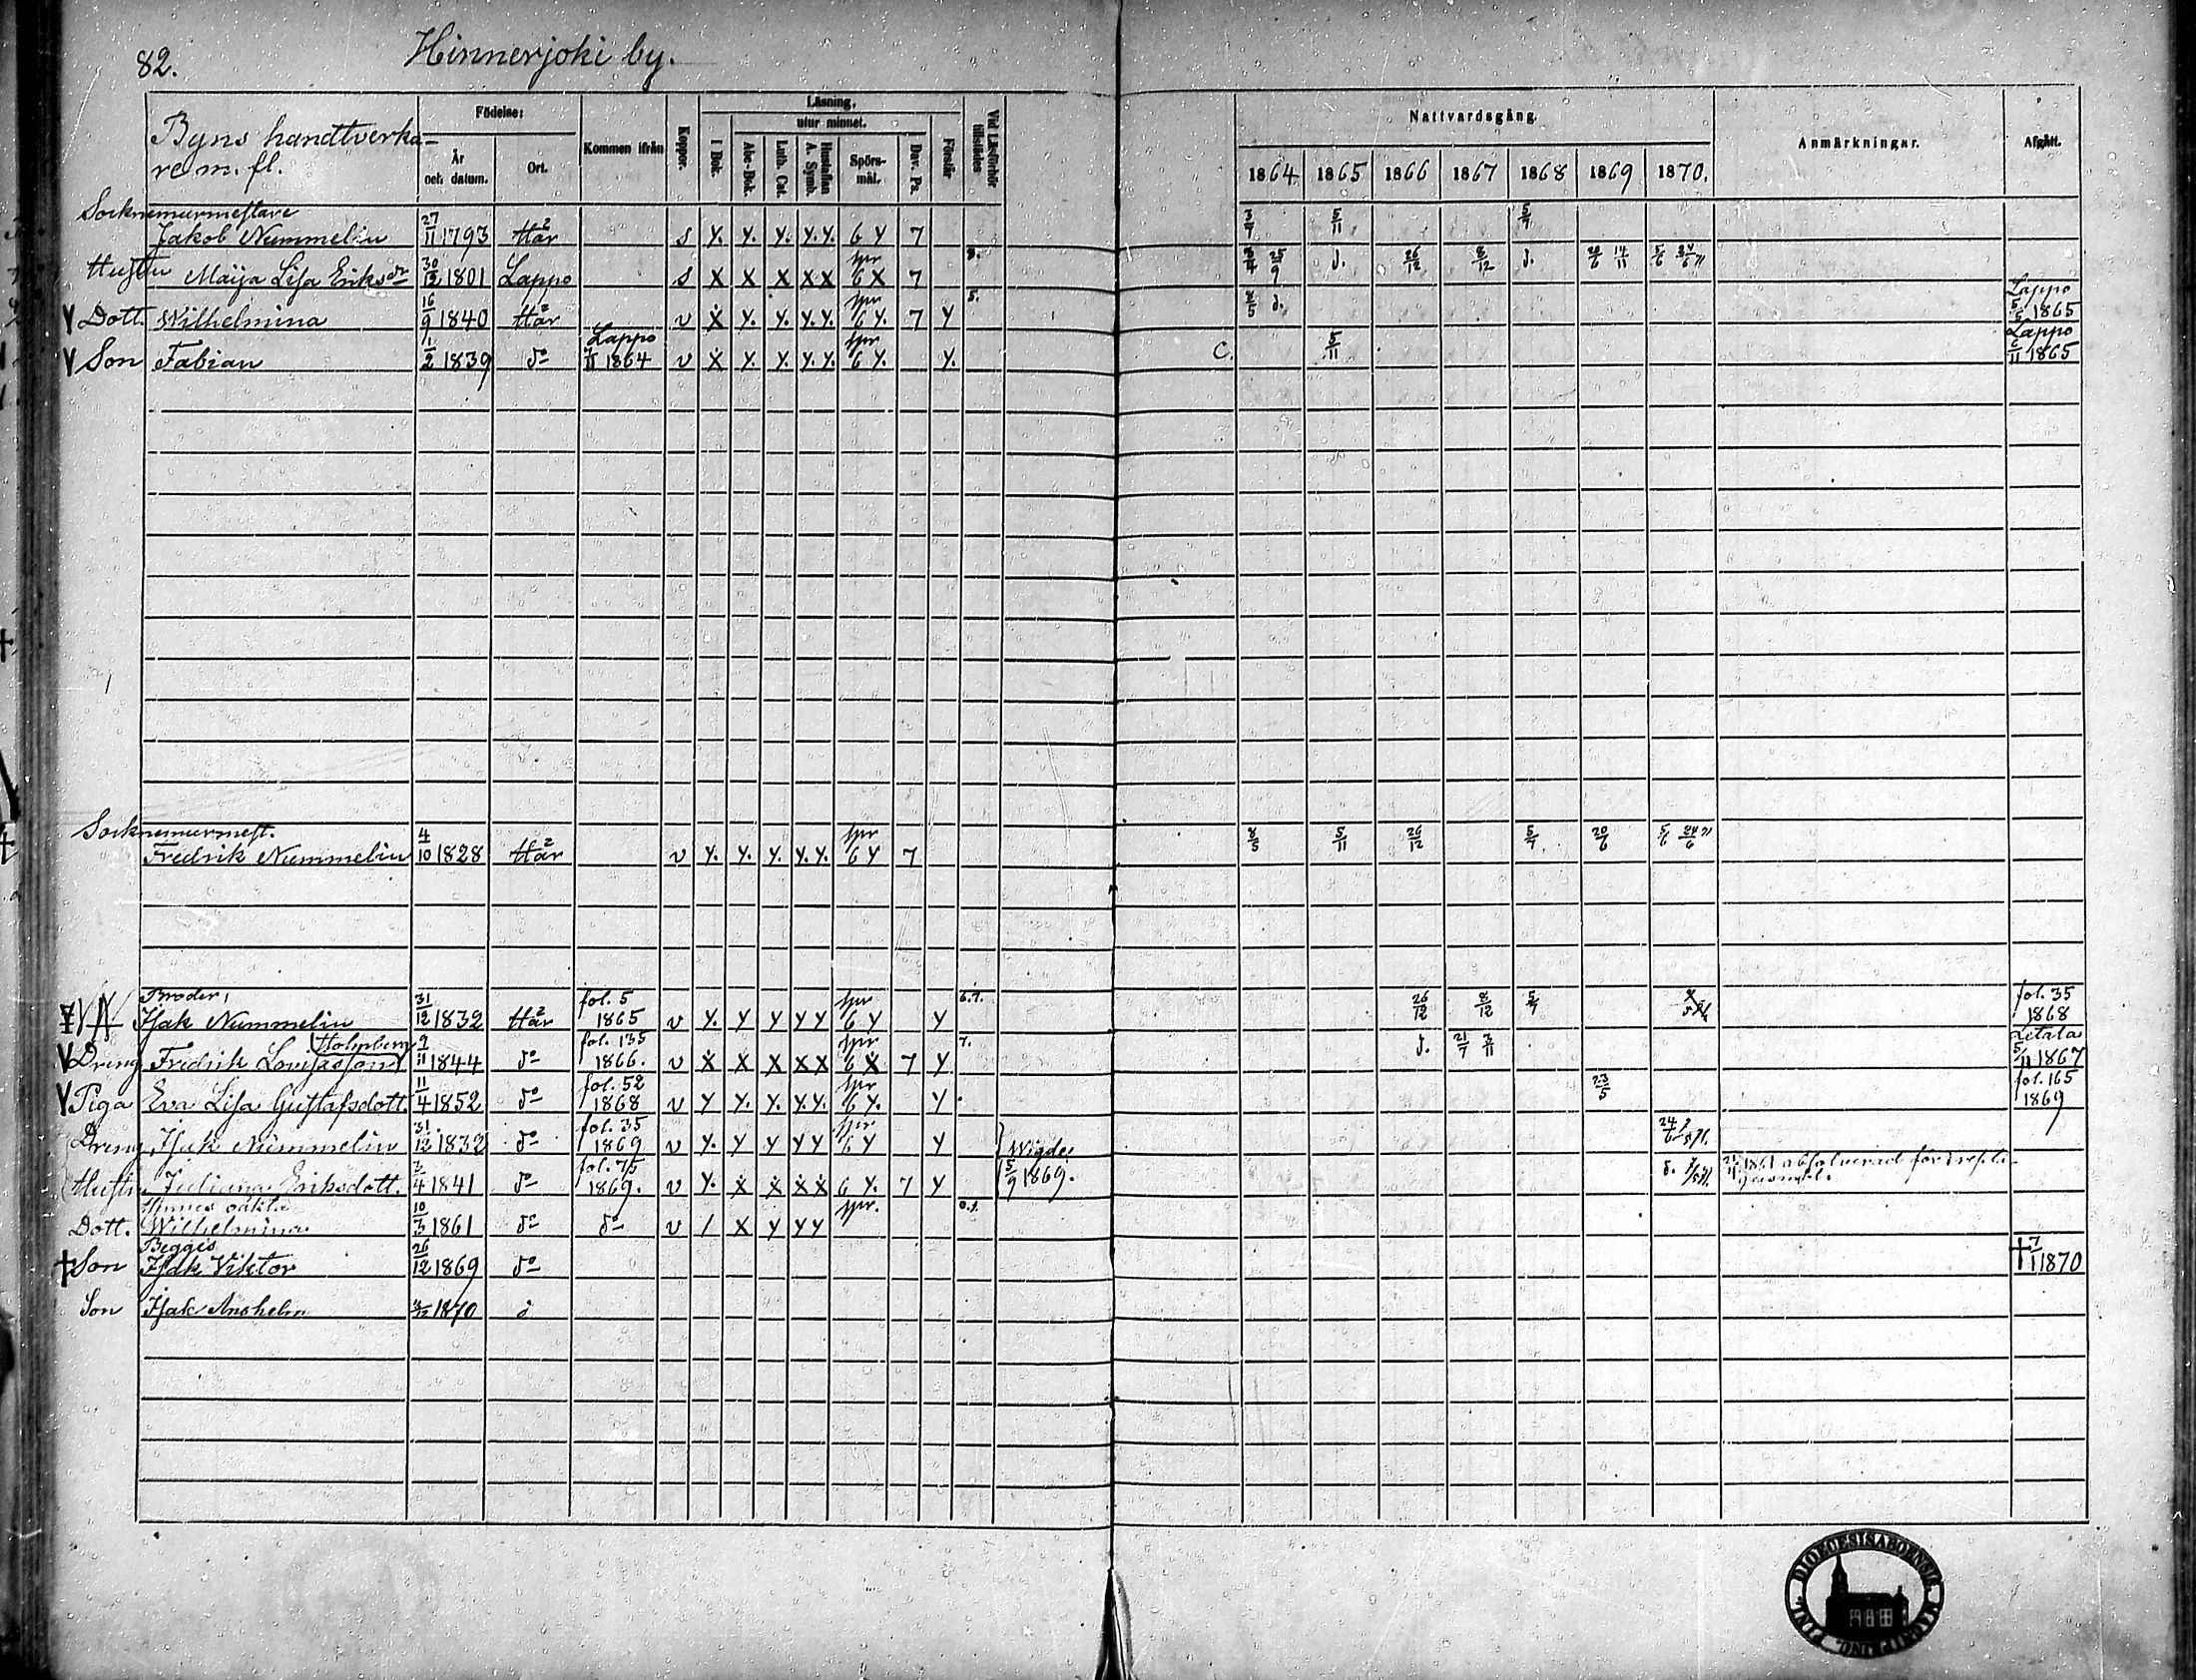 82.
Hinnerjoki by.
Byns handtverka-
re m. fl.
Födelse:
År och datum.
Ort.
Kommen ifrån
Koppor.
Läsning,
utur minnet.
I Bok.
Abc-Bok.
Luth. Cat.
Hustaflan A. Symb.
Spörsmål.
Dav. Ps.
Förstår
Vid Läsförhör tillstädes
Nattvardsgång.
1864 1865 1866 1867 1868 1869 1870.
Anmärkningar.
Afgått.
Socknemurmestare
Jakob Nummelin 27/11 1793 Här s y. y. y. y. y. 6 y 7 5/11 5/7
Hustru Maija Lisa Eriksdr 30/12 1801 Lappo s x x x x x spr 6 x 7 25/9 d. 26/12 8/12 d. 20/6 14/11 5/6 24/6
V Dott. Wilhelmina 16/9 1840 Här v x y. y. y. y. spr 6 y. 7 y 5. 8/5 d. Lappo 5/5 1865
V Son Fabian 1/2 1839 do Lappo 1864 v x y. y. y. y. spr 6 y. y. C. 5/11 Lappo 6/11 1865
Socknemurmest.
Fredrik Nummelin 4/10 1828 Här v y. y. y. y. y. spr 6 y 7 8/5 5/11 26/12 5/7. 20/6 5/6 24/6
Broder,
Isak Nummelin 31/12 1832 Här fol. 5 1865 v y. y y y y spr 6 y y 6.7. 26/12 8/12 5/7 fol. 35 1868
V Dreng Fredrik Lovisasson Holmberg 2/11 1844 do fol. 135 1866. v x x x x x spr 6 x 7 y 7. d. 21/7 3/11 Letala 5/11 1867
V Piga Eva Lisa Gustafsdott. 11/4 1852 do fol. 52 1868 v y y. y. y. y. spr 6 y. y 23/5 fol. 165 1869
Dreng, Isak Nummelin 31/12 1832 do fol. 35 1869 v y. y y y y spr 6 y y Wigde 24/6
Hustru Juliana Eriksdott. 3/4 1841 do fol. 75 1869. v y. x x x x 6 y. 7 y 5/9 1869. d. 1861 absolverad för
Hennes oäkta
Dott. Wilhelmina 10/3 1861 do do v / x y y y spr.
Begges
† Son Isak Viktor 26/12 1869 do † 7/1 1870
Son Isak Anshelm 1870 d